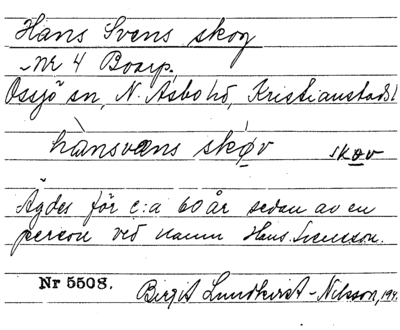 Hans Svens skog
Nr 4 Boarp.
Össjö sn, N. Åsbo hd, Kristianstads l
hànsvæns skøv skov
Ägdes för c:a 60 år sedan av en
person ved namn Hans Svensson.
Nr 5508. Birgit Lundkvist-Nilsson, 194